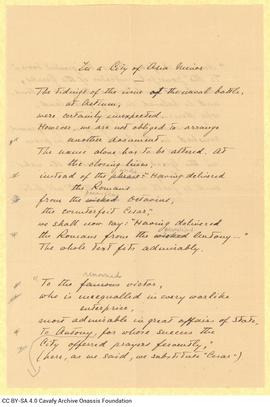 In a City of Asia Minor
The tidings of the issue of the naval battle,
at Actium,
were certainly unexpected.
However, we are not obliged to arrange
another document.
The name alone has to be altered. At
the closing lines,
instead of the phrase: "Having delivered
the Romans
from the wicked Octavius,
the counterfeit Cesar,"
we shall now say: "Having delivered
the Romans from the wicked Antony..."
The whole text fits admirably.
renowned
"To the famous victor,
who is unequalled in every warlike
enterprise,
most admirable in great affairs of State,
to Antony, for whose success the
City offered prayers fervently,"
(here, as we said, we substitute "Cesar")
CC BY-SA 4.0 Cavafy Archive Onassis Foundation